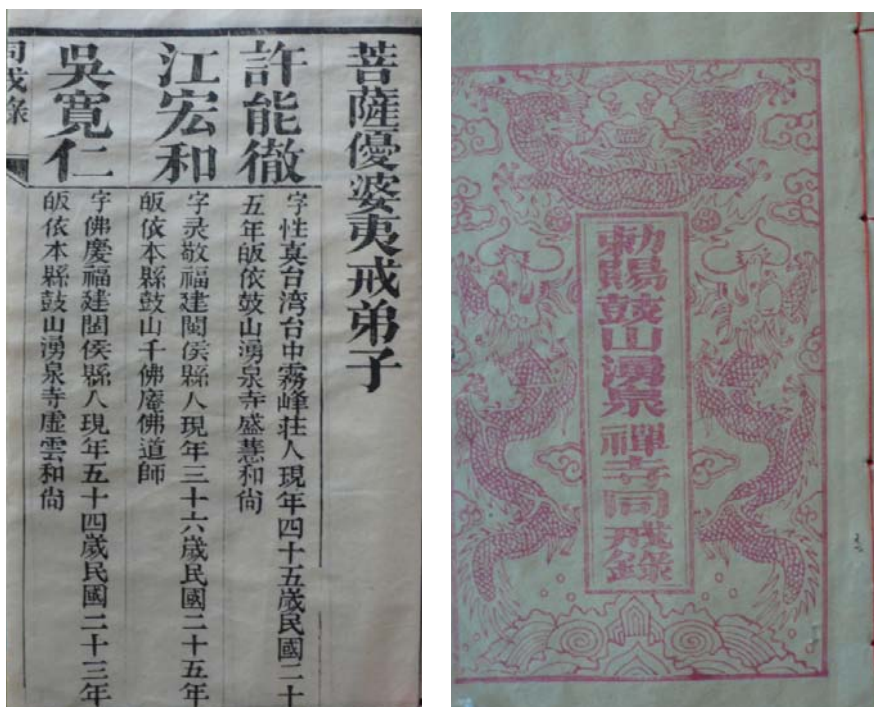 菩薩優婆夷戒弟子
許能徹
字性真台湾台中霧峰荘人現年四十五歲民國二十
五年皈依鼓山湧泉寺盛慧和尙
江宏和
字录敬福建閩侯縣人現年三十六歲民國二十五年
皈依本縣鼓山千佛庵佛道師
吳寬仁
字佛慶福建閩侯縣人現年五十四歲民國二十三年
皈依本縣鼓山湧泉寺虛雲和尙
同戒錄
勅賜鼓山湧泉禪寺同戒錄